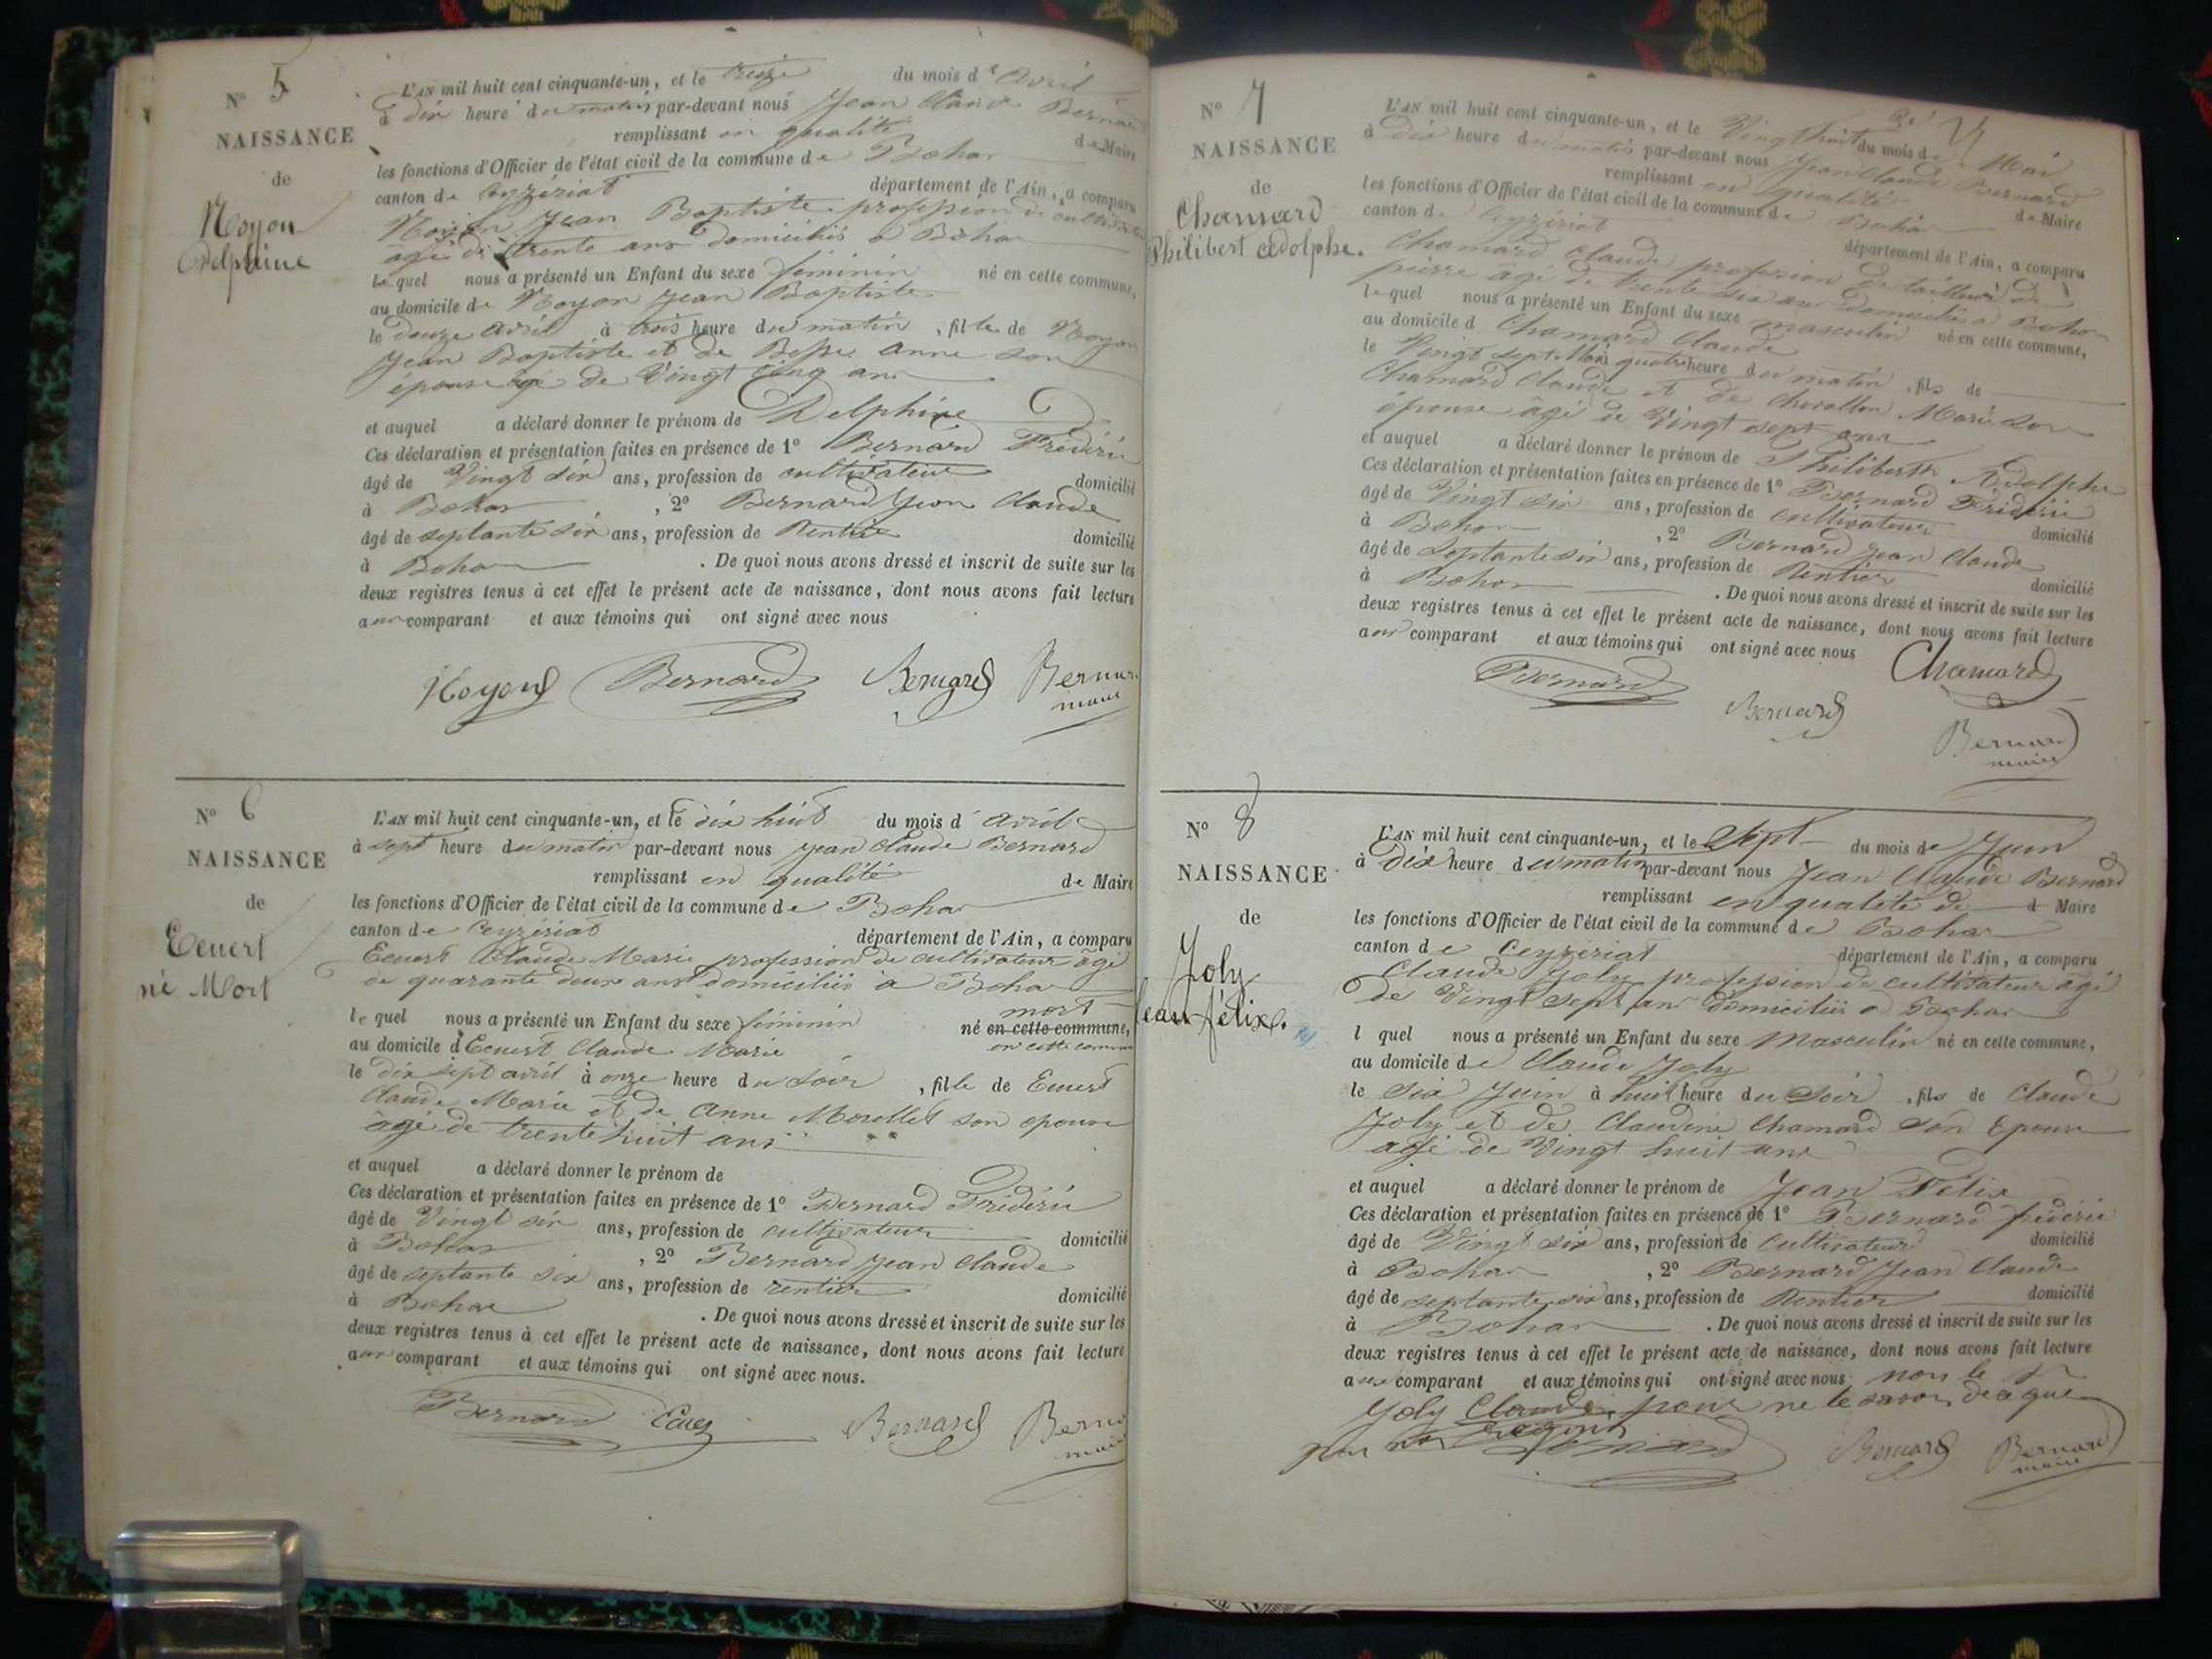 N° 5
NAISSANCE
de
Noyon
Delphine
L'AN mil huit cent cinquante-un, et le treize du mois d'Avril
à dix heure du matin par-devant nous Jean Claude Bernard
remplissant en qualité de Maire
les fonctions d'Officier de l'état civil de la commune de Bohas
canton de Ceyzériat département de l'Ain, a comparu
Noyon Jean Baptiste profession de cultivateur
agé de trente ans domiciliés a Bohas
lequel nous a présenté un Enfant du sexe féminin né en cette commune,
au domicile de Noyon Jean Baptiste
le douze avril à trois heure du matin, fille de Noyon
Jean Baptiste et de Anne son
épouse agé de Vingt cinq ans
et auquel a déclaré donner le prénom de Delphine
Ces déclaration et présentation faites en présence de 1° Bernard Frédéric
âgé de Vingt six ans, profession de cultivateur domicilié
à Bohas, 2° Bernard Jean Claude
âgé de septante six ans, profession de Rentier domicilié
à Bohas. De quoi nous avons dressé et inscrit de suite sur les
deux registres tenus à cet effet le présent acte de naissance, dont nous avons fait lecture
aux comparant et aux témoins qui ont signé avec nous
Noyon Bernard Bernard Bernard
maire
N° 6
NAISSANCE
de
Ecuert
né Mort
L'AN mil huit cent cinquante-un, et le dix huit du mois d'avril
à sept heure du matin par-devant nous Jean Claude Bernard
remplissant en qualité de Maire
les fonctions d'Officier de l'état civil de la commune de Bohas
canton de Ceyzériat département de l'Ain, a comparu
Ecuert Claude Marie profession de cultivateur âgé
de quarante deux ans domiciliés à Bohas
lequel nous a présenté un Enfant du sexe féminin mort
né en cette commune,
en cette commune
au domicile d'Ecuert Claude Marie
le dix sept avril à onze heure du soir, fille de Ecuert
Claude Marie et de Anne Morellet son epouse
âgé de trente huit ans
et auquel a déclaré donner le prénom de
Ces déclaration et présentation faites en présence de 1° Bernard Frédéric
âgé de Vingt six ans, profession de cultivateur domicilié
à Bohas, 2° Bernard Jean Claude
âgé de septante six ans, profession de rentier domicilié
à Bohas. De quoi nous avons dressé et inscrit de suite sur les
deux registres tenus à cet effet le présent acte de naissance, dont nous avons fait lecture
aux comparant et aux témoins qui ont signé avec nous.
Bernard Bernard Bernard
maire
N° 7
NAISSANCE
de
Chamard
Philibert Adolphe.
L'AN mil huit cent cinquante-un, et le Vingt huit du mois de Mai
à dix heure du matin par-devant nous Jean Claude Bernard
remplissant en qualité de Maire
les fonctions d'Officier de l'état civil de la commune de Bohas
canton de Ceyzériat département de l'Ain, a comparu
Chamard Claude profession de tailleur de
pierre âgé de trente six ans domiciliés a Bohas
lequel nous a présenté un Enfant du sexe masculin né en cette commune,
au domicile d Chamard Claude
le Vingt sept Mai quatre heure du matin, fils de
Chamard Claude et de Marie son
épouse âgé de Vingt sept ans
et auquel a déclaré donner le prénom de Philiberth Adolphe
Ces déclaration et présentation faites en présence de 1° Bernard Frédéric
âgé de Vingt six ans, profession de cultivateur domicilié
à Bohas, 2° Bernard Jean Claude
âgé de septante six ans, profession de Rentier domicilié
à Bohas. De quoi nous avons dressé et inscrit de suite sur les
deux registres tenus à cet effet le présent acte de naissance, dont nous avons fait lecture
aux comparant et aux témoins qui ont signé avec nous
Chamard
Bernard
Bernard
Bernard
maire
N° 8
NAISSANCE
de
Joly
Jean félix.
L'AN mil huit cent cinquante-un, et le Sept du mois de Juin
à dix heure du matin par-devant nous Jean Claude Bernard
remplissant en qualité de d Maire
les fonctions d'Officier de l'état civil de la commune de Bohas
canton de Ceyzériat département de l'Ain, a comparu
Claude Joly profession de cultivateur âgé
de Vingt sept ans domiciliés a Bohas
l quel nous a présenté un Enfant du sexe Masculin né en cette commune,
au domicile de Claude Joly
le Six Juin à huit heure du Soir, fils de Claude
Joly et de Claudine Chamard son Epouse
agé de Vingt huit ans
et auquel a déclaré donner le prénom de Jean Félix
Ces déclaration et présentation faites en présence de 1° Bernard frédéric
âgé de Vingt six ans, profession de cultivateur domicilié
à Bohas, 2° Bernard Jean Claude
âgé de septante six ans, profession de Rentier domicilié
à Bohas. De quoi nous avons dressé et inscrit de suite sur les
deux registres tenus à cet effet le présent acte de naissance, dont nous avons fait lecture
aux comparant et aux témoins qui ont signé avec nous non le
Joly Claude pour ne le savoir de ce que
par nous requis
Bernard Bernard
maire